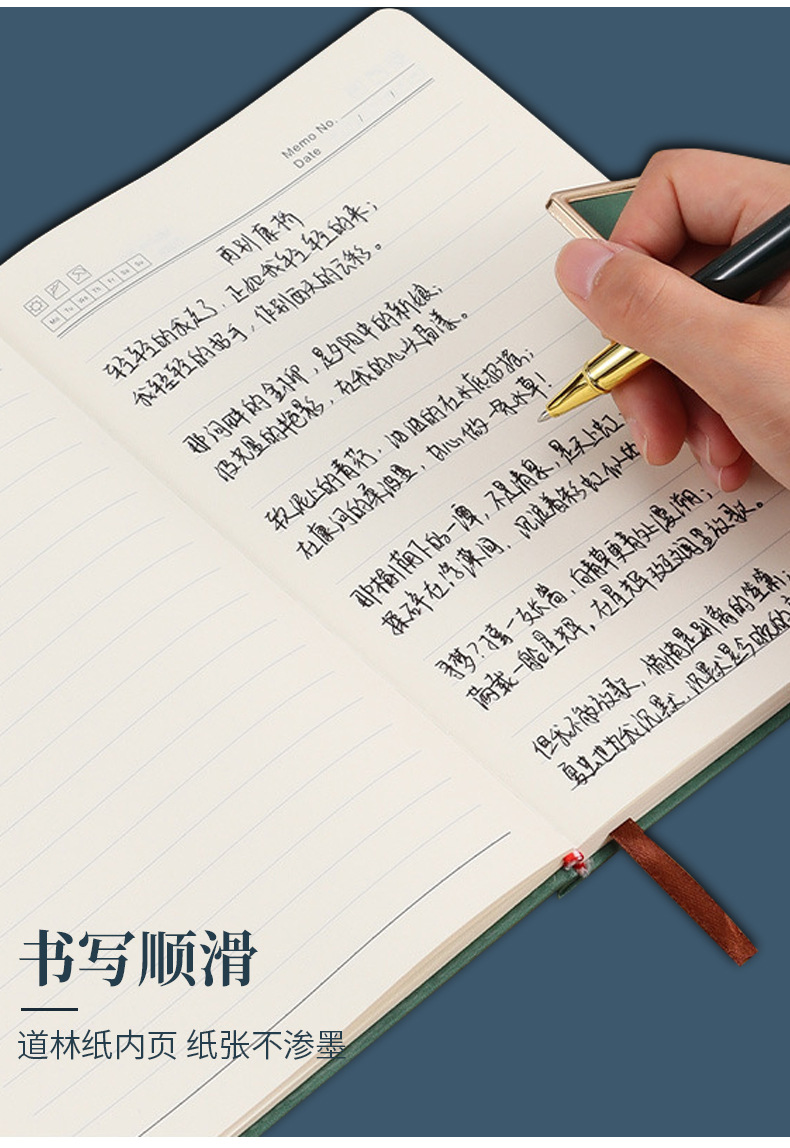 Memo No.
Date / /
Mo Tu We Th Fr Sa Su
再别康桥
轻轻的我走了，正如我轻轻的来；
我轻轻的招手，作别西天的云彩。
那河畔的金柳，是夕阳中的新娘；
波光里的艳影，在我的心头荡漾。
软泥上的青荇，油油的在水底招摇；
在康河的柔波里，甘心做一条水草！
那榆荫下的一潭，不是清泉，是天上虹
揉碎在浮藻间，沉淀着彩虹似的
寻梦？撑一支长篙，向青草更青处漫溯；
满载一船星辉，在星辉斑斓里放歌。
但我不能放歌，悄悄是别离的笙箫；
夏虫也为我沉默，沉默是今晚的
书写顺滑
道林纸内页 纸张不渗墨